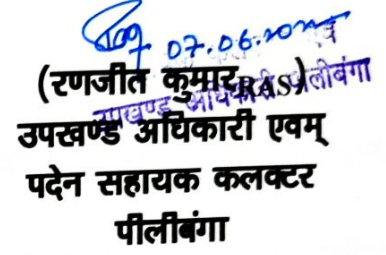 07.06.20
(रणजीत कुमार RAS)
उपखण्ड अधिकारी पीलीबंगा
उपखण्ड अधिकारी एवम्
पदेन सहायक कलक्टर
पीलीबंगा